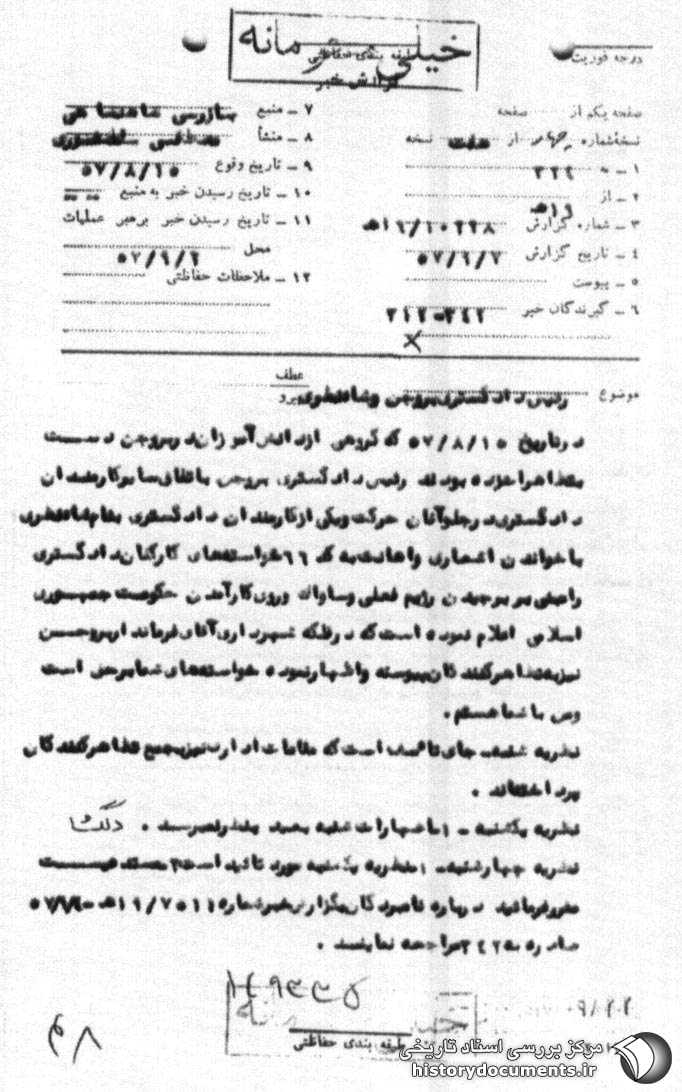 خیلی محرمانه
طبقه بندی حفاظتی
گزارش خبر
درجه فوریت
صفحه یکم از صفحه
نسخه شماره چهار از هفت نسخه
۱ ـ به ۳۴۲
۲ ـ از ۱۹ﻫ
۳ ـ شماره گزارش
۴ ـ تاریخ گزارش ۵۷/۹/۷
۵ ـ پیوست
۶ ـ گیرندگان خبر ۳۴۲-۳۱۲
۷ ـ منبع بازرسی شاهنشاهی
۸ ـ منشأ
۹ ـ تاریخ وقوع ۵۷/۸/۱۵
۱۰ ـ تاریخ رسیدن خبر به منبع
۱۱ ـ تاریخ رسیدن خبر برهبر عملیات
محل
۱۲ ـ ملاحظات حفاظتی
موضوع رئیس دادگستری بروجن و شاه نظری
عطف
پیرو
در تاریخ ۵۷/۸/۱۵ که گروهی از دانش آموزان در بروجن دست
بتظاهرات زده بودند رئیس دادگستری بروجن باتفاق سایر کارمندان
دادگستری در جلو آنان حرکت و یکی از کارمندان دادگستری بنام شاه نظری
با خواندن اشعاری و اهانت به که خواسته های کارکنان دادگستری
را مبنی بر برچیدن رژیم فعلی و ساواک و روی کار آمدن حکومت جمهوری
اسلامی اعلام نموده است که در فلکه شهرداری آقای فرماندار بروجن
نیز به تظاهرکنندگان پیوسته و اظهار نموده خواسته های شما برحق است
و من با شما هستم.
نظریه شنبه ـ جای تاسف است که مقامات اداری نیز بجمع تظاهرکنندگان
پرداخته‌اند .
نظریه یکشنبه ـ اظهارات شنبه بعید بنظر نمیرسد . دلگشا
نظریه چهارشنبه ـ ۱ـ نظریه یکشنبه مورد تائید است ۲ـ مستدعیست
مقرر فرمائید درباره نامبردگان بگزارش خبر شماره
صادره به ۳۴۲ مراجعه نمایند .
طبقه بندی حفاظتی
مرکز بررسی اسناد تاریخی
historydocuments.ir